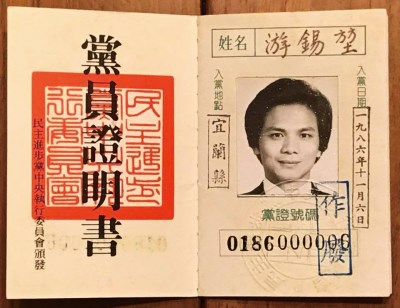 黨員證明書
民主進步
行委員會
民主進步黨中央執行委員會頒發
姓名 游錫堃
入黨日期
一九八六年十一月六日
入黨地點
宜蘭縣
黨證號碼
0186000006
作廢